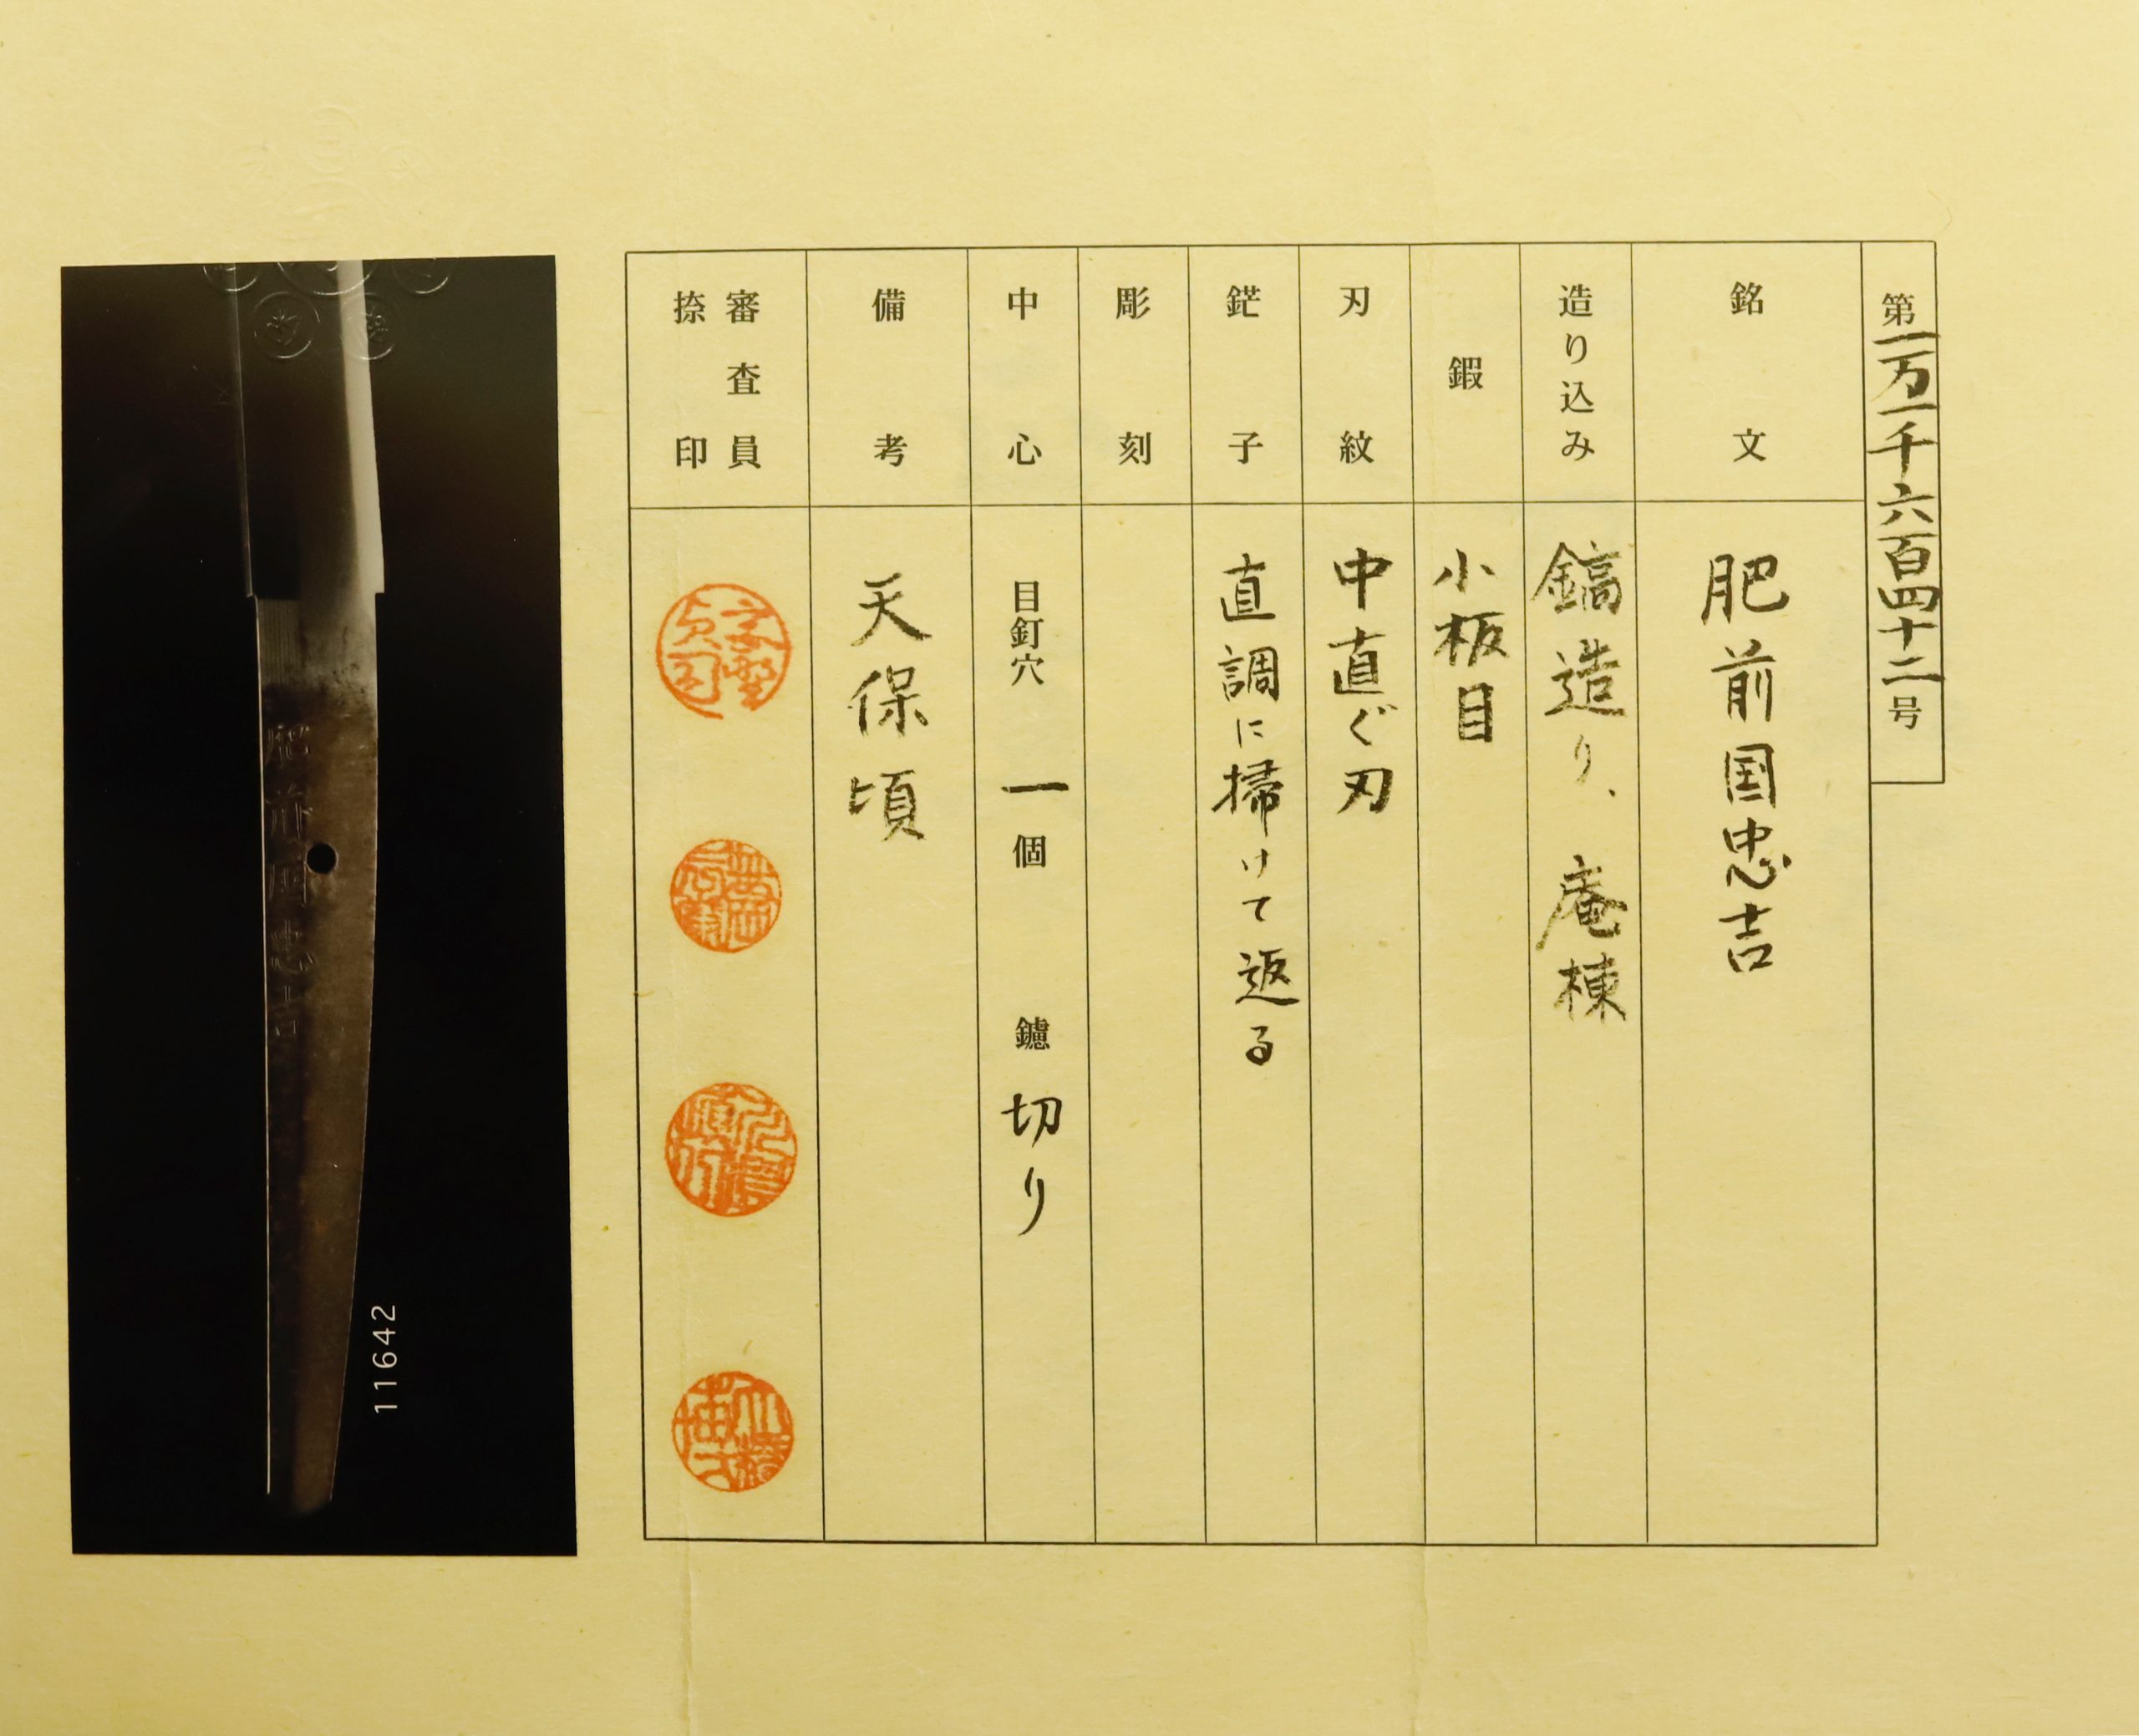 第一万一千六百四十二号
銘文
肥前国忠吉
造り込み
鎬造り、庵棟
鍜
小板目
刃紋
中直ぐ刃
鋩子
直調に掃けて返る
彫刻
中心
目釘穴 一個 鑢 切り
備考
天保頃
審査員
捺印
肥前国忠吉
11642